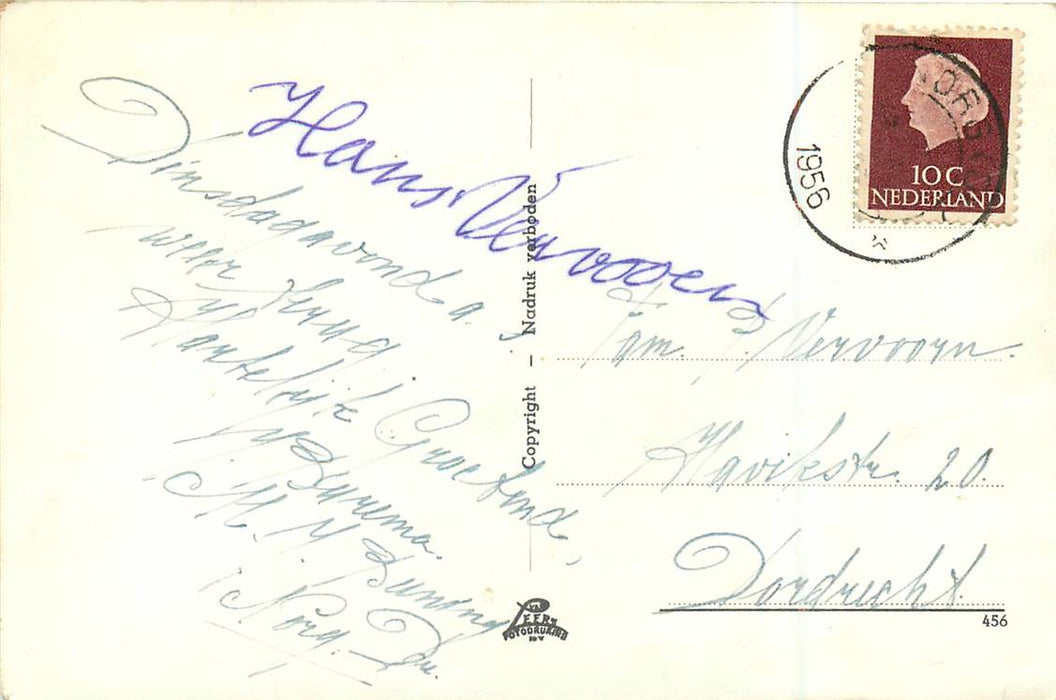 Hans Vervoorn
Dinsdagavond a.s.
weer terug
Hartelijke Groetend,
Buurema.
M.
Norg. Dr.
Copyright – Nadruk verboden
1956
10 C
NEDERLAND
Fam. Vervoorn.
Havikstr. 20.
Dordrecht.
FOTODRUKKERIJ
456